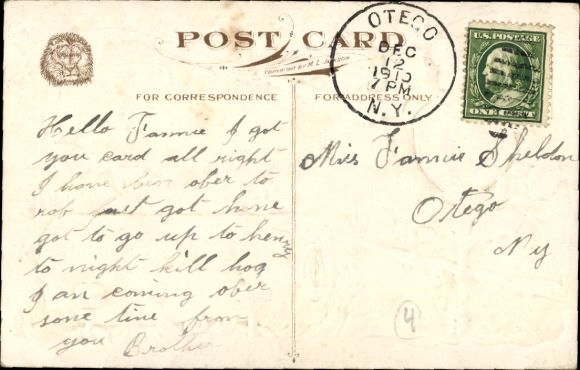 POST CARD
COPYRIGHT BY M. L. JACKSON
FOR CORRESPONDENCE
FOR ADDRESS ONLY
OTEGO
DEC
12
1910
7 PM
N.Y.
U.S. POSTAGE
ONE CENT
Hello Fannie I got
you card all right
I hane ben ober to
rob just got hone
got to go up to henry
to night kill hog
I an coming ober
sone tine fron
you Brother
Miss Fannie Sheldon
Otego
Ny
4